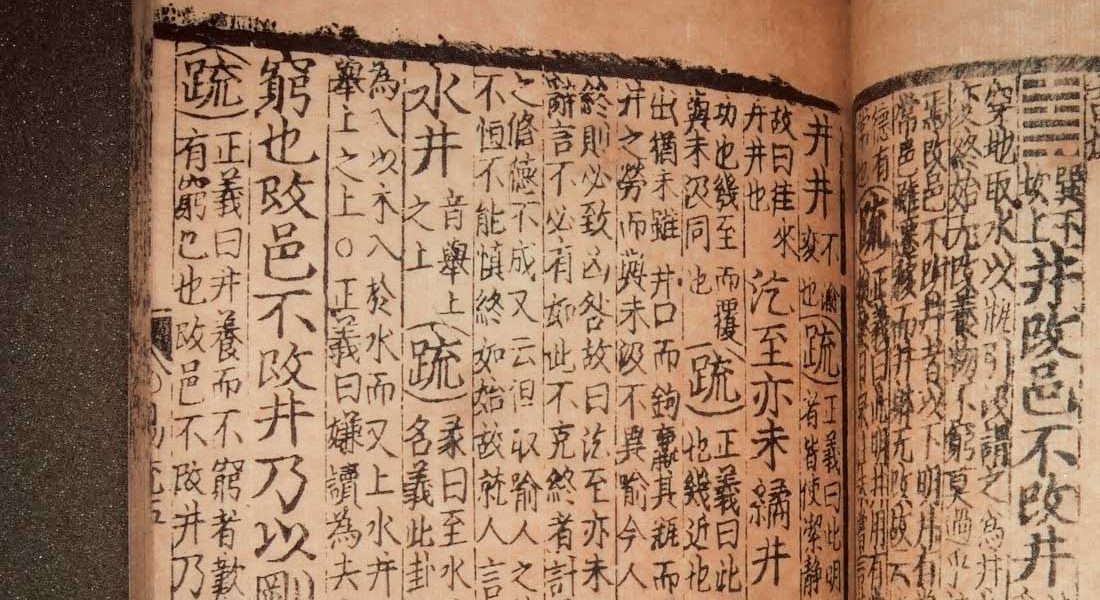 巽下
坎上
井改邑不改井
穿地取水以瓶引汲謂之為井
終始无改養物不窮莫過乎
改邑不改井者以下明井有
常邑雖遷移而井體无改故云
德有
常也
疏
井井不
變
渝
也
疏
正義曰此明
者皆使潔靜
故曰往來
井井也
汔至亦未繘井
功也幾至而覆
與未汲同也
疏
正義曰此
也幾近也
出猶未離井口而鉤羸其瓶而
井之勞而與未汲不異喻今人
終則必致凶咎故曰汔至亦未
辭言不必有如此不克終者計
之脩德不成又云但取喻人之
不恒不能慎終如始故就人言
水井之上
音舉上
疏
彖曰至水
名義此卦
為入以木入於水而又上水井
舉上之上○正義曰嫌讀為去
窮也改邑不改井乃以剛
疏
正義曰井養而不窮者歎
有窮已也改邑不改井乃